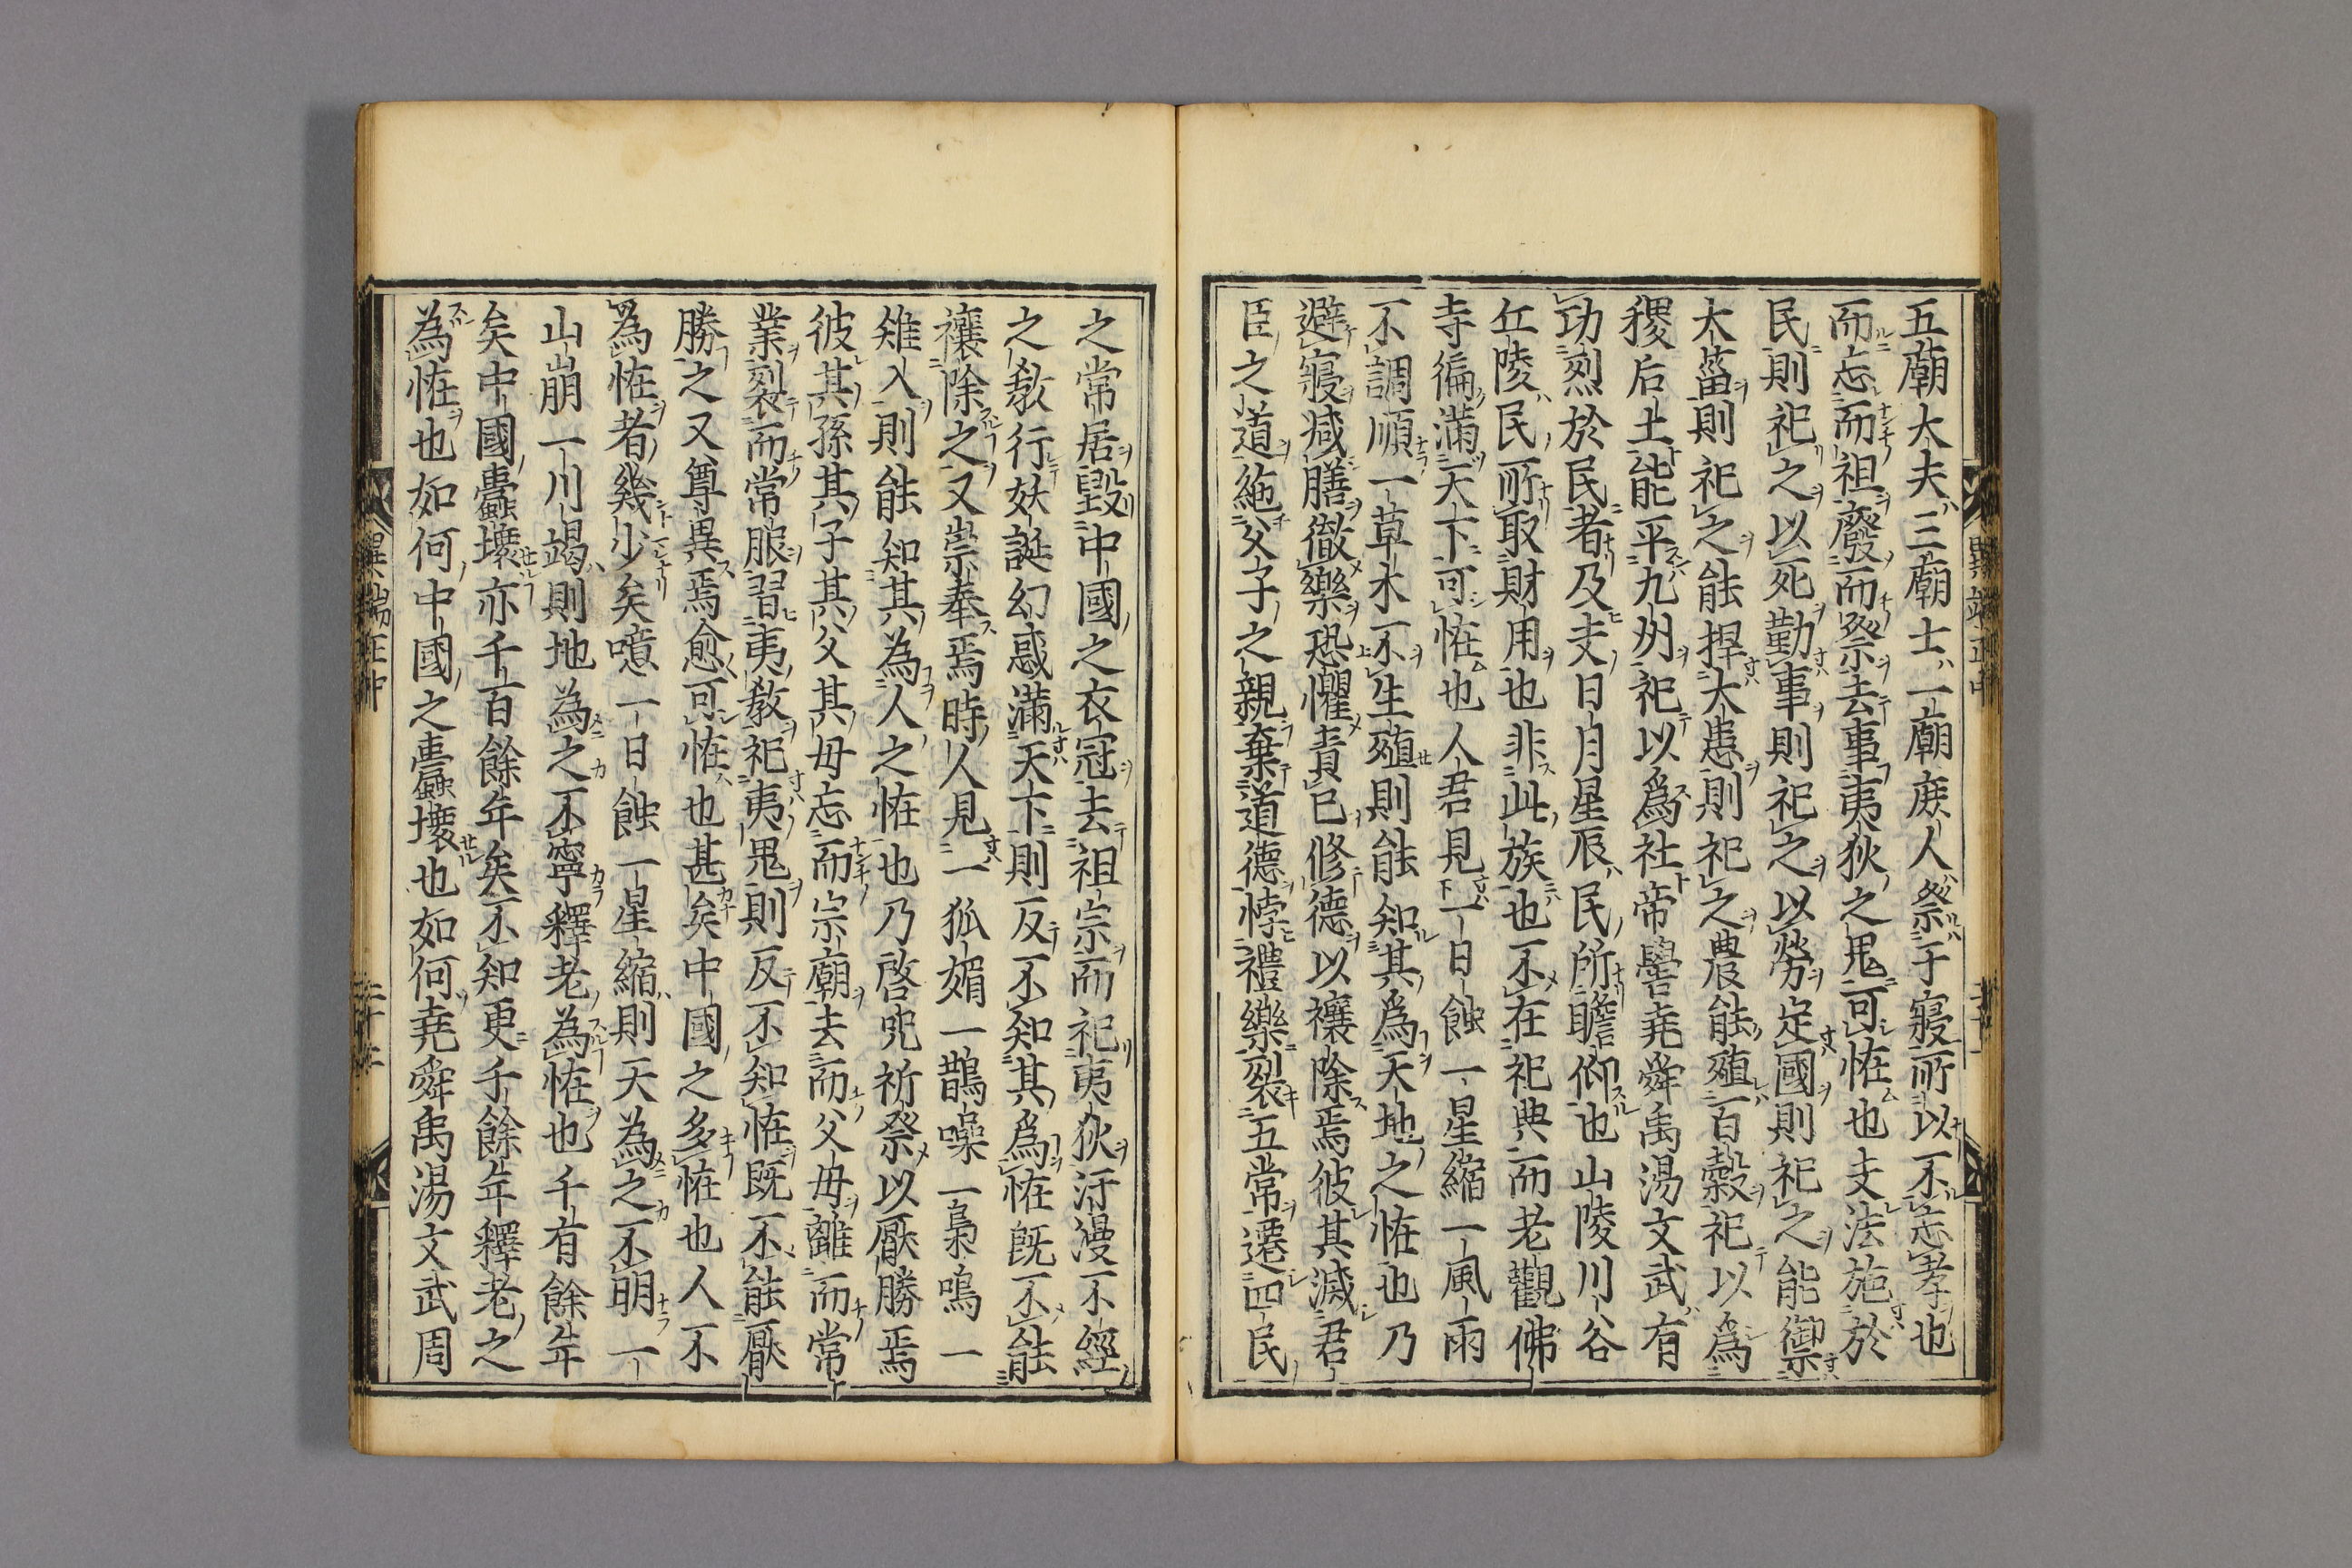 五廟大夫三廟士一廟庶人祭于寢所以不忘孝也
而忘而祖廢而祭去事夷狄之鬼可恠也夫法施於
民則祀之以死勤事則祀之以勞定國則祀之能禦
大菑則祀之能捍大患則祀之農能殖百穀祀以爲
稷后土能平九州祀以爲社帝嚳堯舜禹湯文武有
功烈於民者及夫日月星辰民所瞻仰也山陵川谷
丘陵民所取財用也非此族也不在祀典而老觀佛
寺徧滿天下可恠也人君見一日蝕一星縮一風雨
不調順一草木不生殖則能知其爲天地之恠也乃
避寢減膳徹樂恐懼責已修德以禳除焉彼其滅君
臣之道絶父子之親棄道德悖禮樂裂五常遷四民
之常居毀中國之衣冠去祖宗而祀夷狄汙漫不經
之教行妖誕幻惑滿天下則反不知其爲恠既不能
禳除之又崇奉焉時人見一狐媚一鵲噪一梟鳴一
雉入則能知其為人之恠也乃啓呪祈祭以厭勝焉
彼其孫其子其父其母忘而宗廟去而父母離而常
業裂而常服習夷教祀夷鬼則反不知恠既不能厭
勝之又尊異焉愈可恠也甚矣中國之多恠也人不
為恠者幾少矣噫一日蝕一星縮則天為之不明一
山崩一川竭則地為之不寧釋老為恠也千有餘年
矣中國蠹壞亦千百餘年矣不知更千餘年釋老之
為恠也如何中國之蠹壞也如何堯舜禹湯文武周